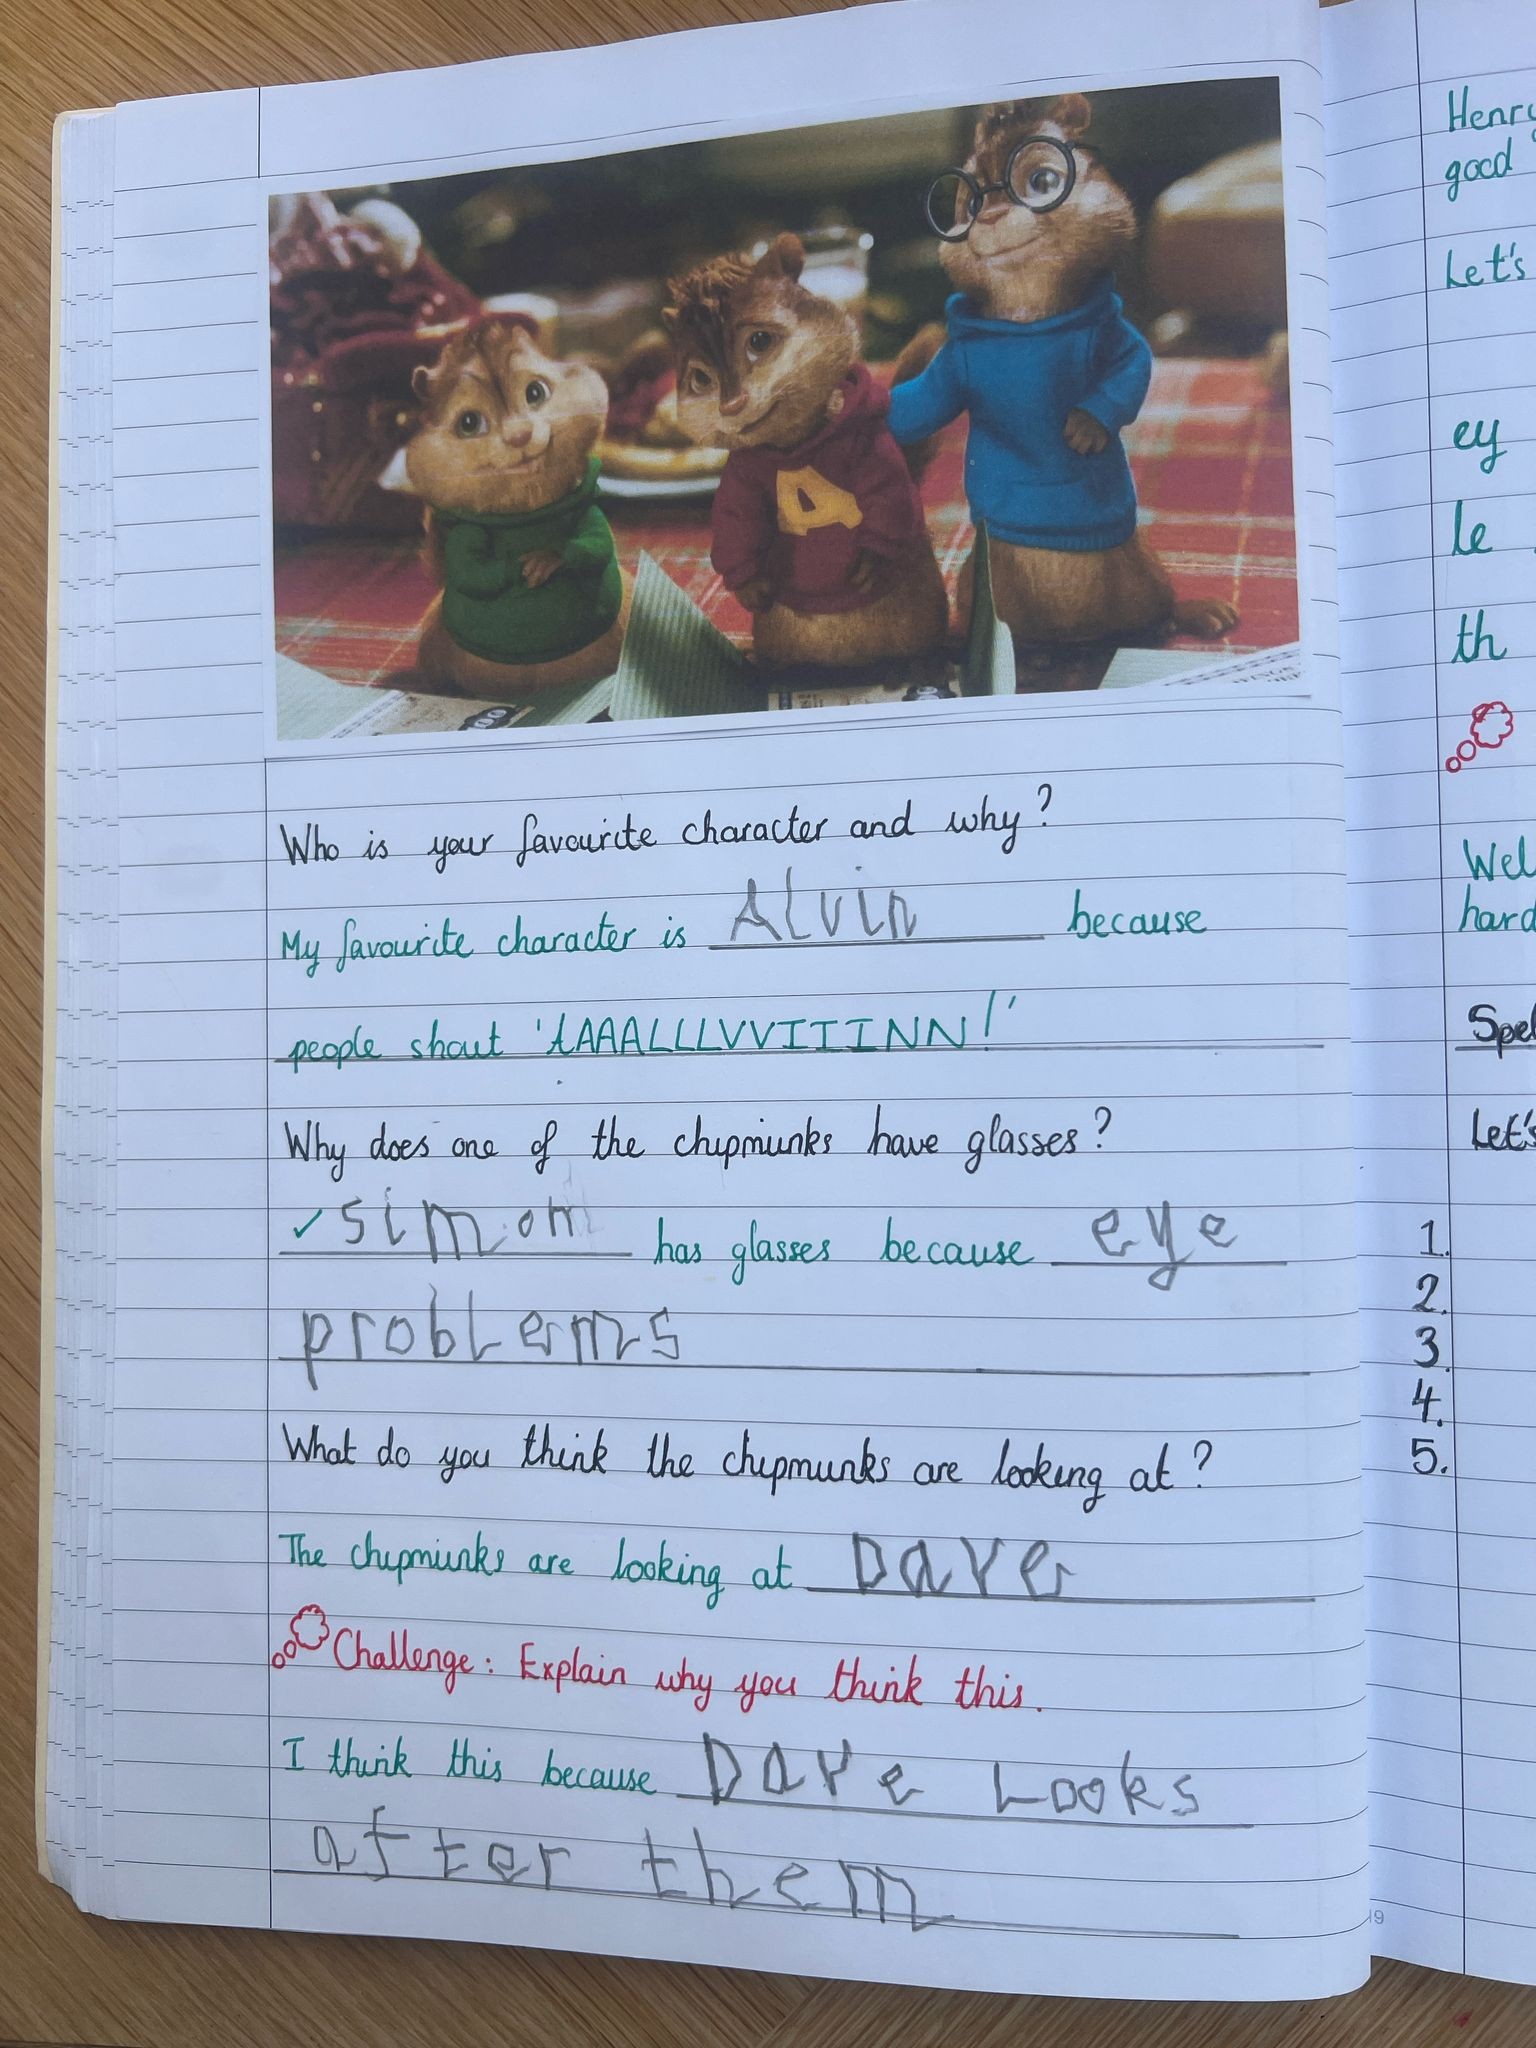 Who is your favourite character and why?
My favourite character is ALvin because
people shout 'AAAALLLVVIIINN!'
Why does one of the chipmunks have glasses?
✓ simon has glasses because eye
probLems
What do you think the chipmunks are looking at?
The chipmunks are looking at Dave
Challenge: Explain why you think this.
I think this because Dave Looks
after them
19
Henry
good
Let's
ey
le
th
hard
Let's
1.
2.
3.
4.
5.
A
100